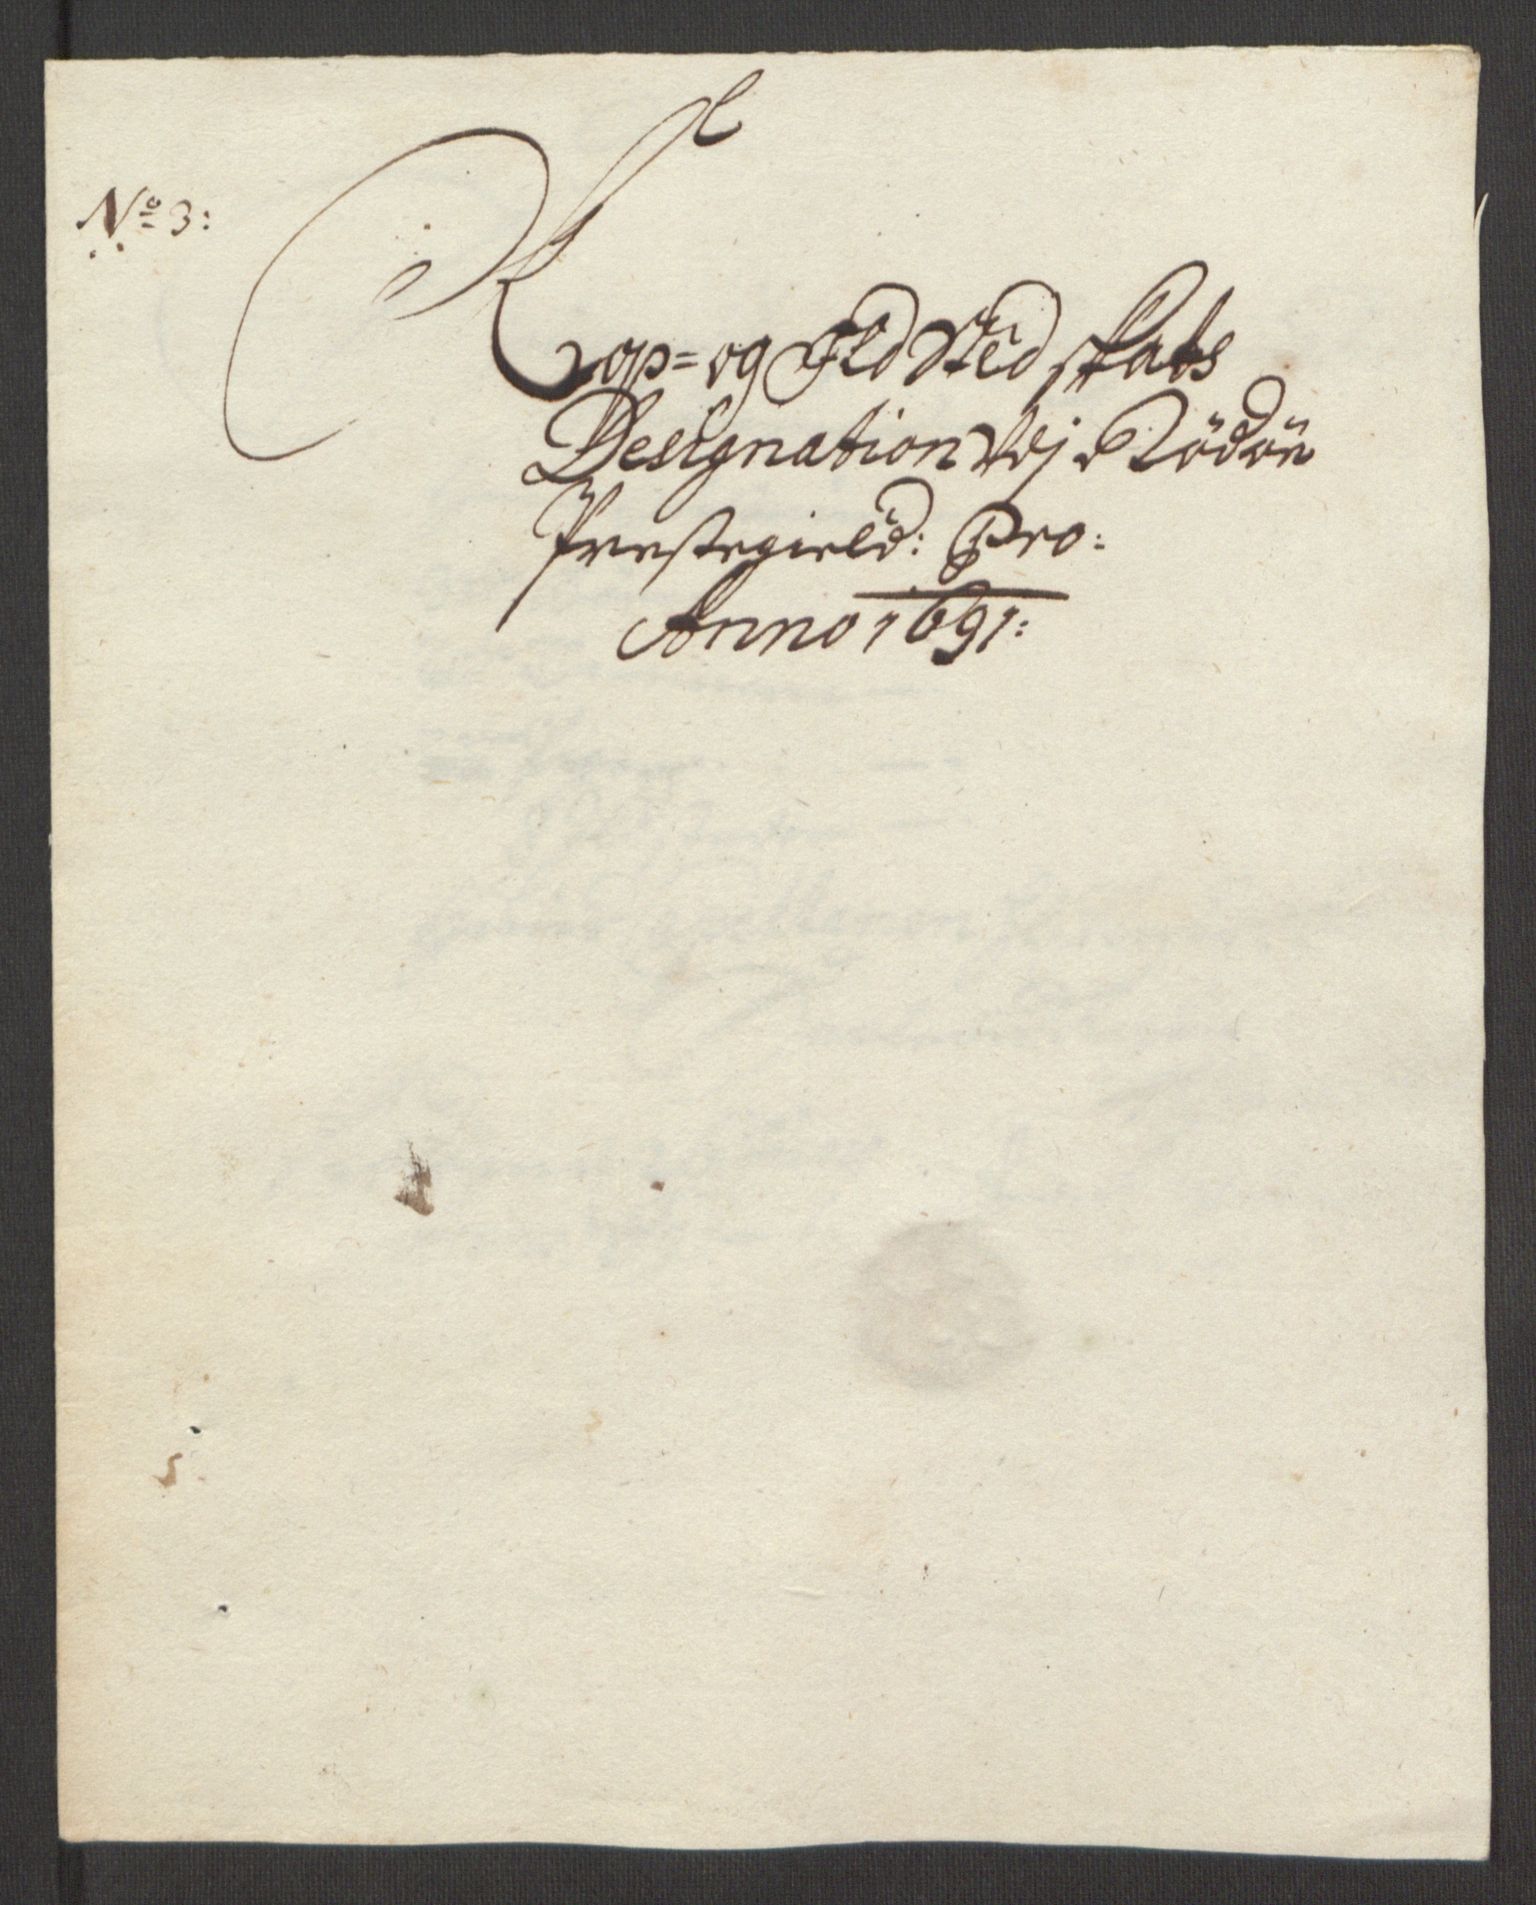 No 3:
Kop= og Ild Sted skats
Designation Udj Rödöe
Prestegield: Pro:
Anno 1691: